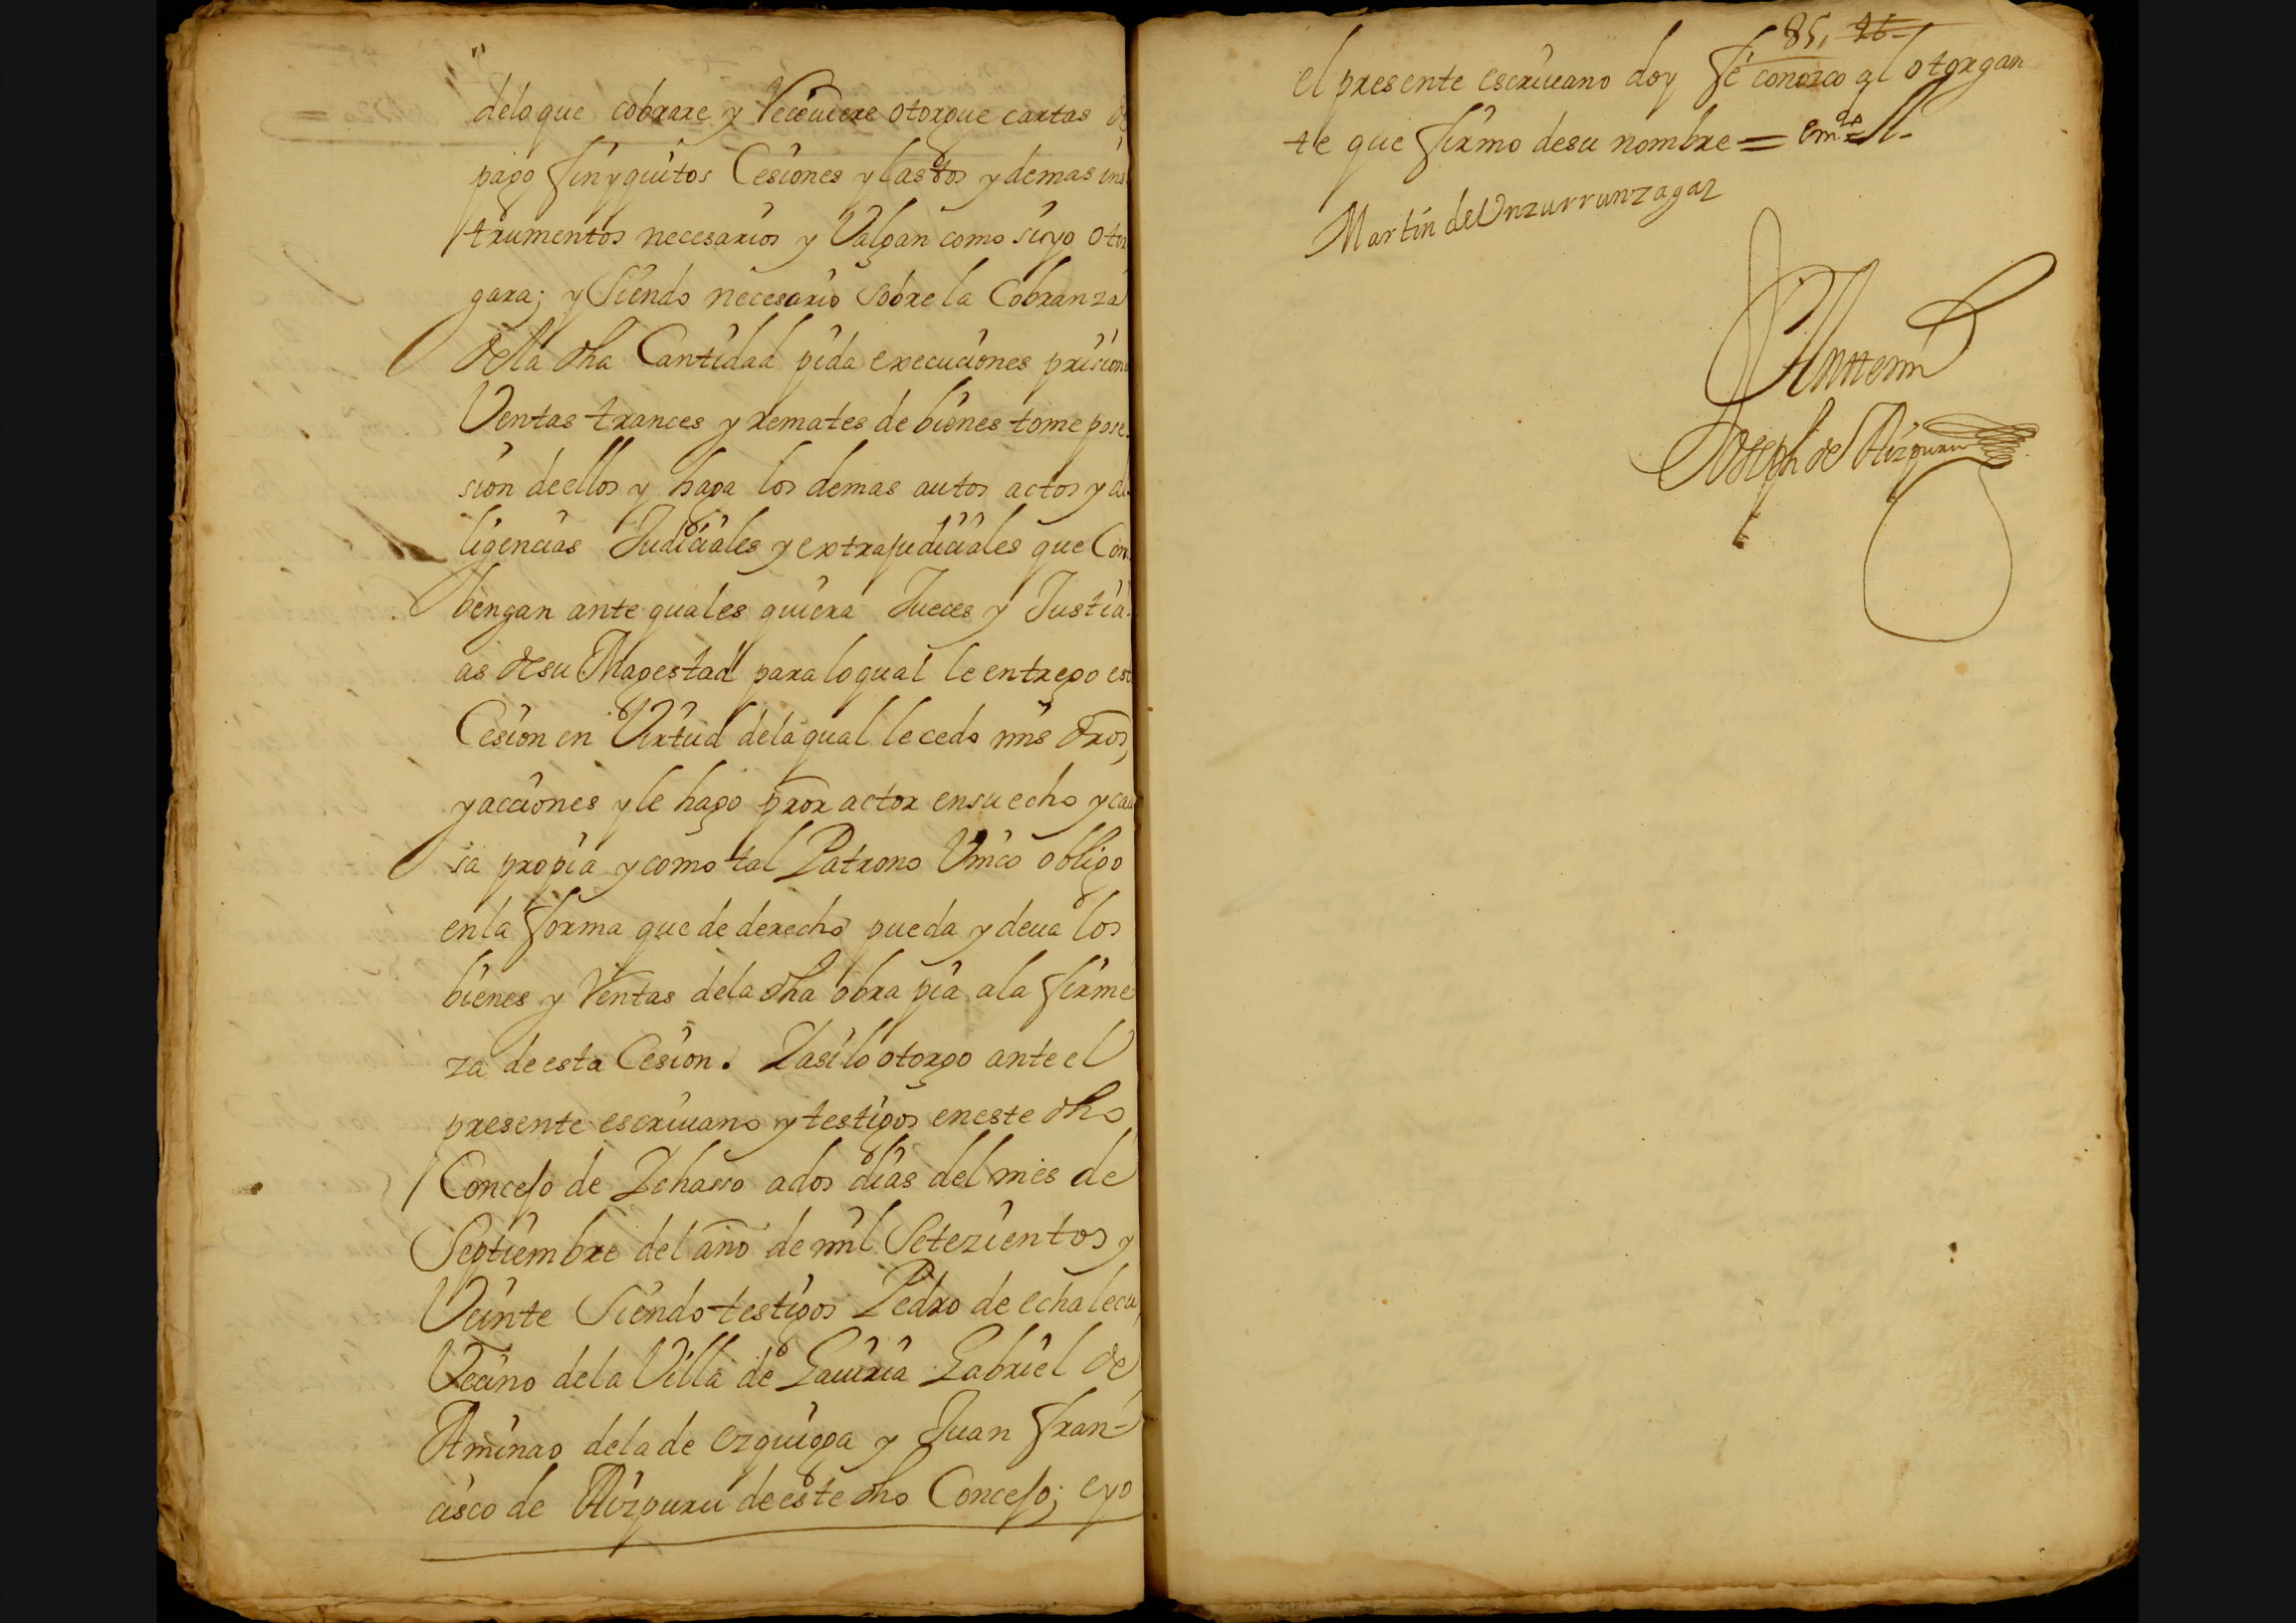 deloque cobrare y Receuiere otorgue cartas de
pago finyquitos Cesiones y lastos y demas ins
trumentos necesarios y Valgan como si yo otor
gara; y Siendo necesario sobre la Cobranza
de la dha Cantidad pida execuciones prision
Ventas trances y remates de bienes tome pose
sion de ellos y haga los demas autos actos y di
ligencias Judiciales y extrajudiciales que Con
bengan ante quales quiera Jueces y Justici
as de su Magestad para lo qual le entrego est
Cesion en Virtud dela qual le cedo mis dros,
y acciones y le hago pror actor en su echo y cau
sa propia y como tal Patrono Unico obligo
en la forma que de derecho pueda y deua los
bienes y Rentas dela dha obra pia ala firme
za de esta Cesion. Yasilo otorgo ante el
presente escriuano y testigos en este dho
Concejo de Ichasso a dos dias del mes de
Septiembre del año de mil Setezientos y
Veinte Siendo testigos Pedro de echalecu
Vecino dela Villa de Gauiria Gabriel de
Aminao dela de ezquioga y Juan fran-
cisco de Aizpuru de este dho Concejo; e yo
85, 46
el presente escriuano doy fe conozco al otorgan
te que firmo de su nombre = emdo = ll-
Martin de Unzurrunzagaz
Antemi
Joseph de Aizpuru